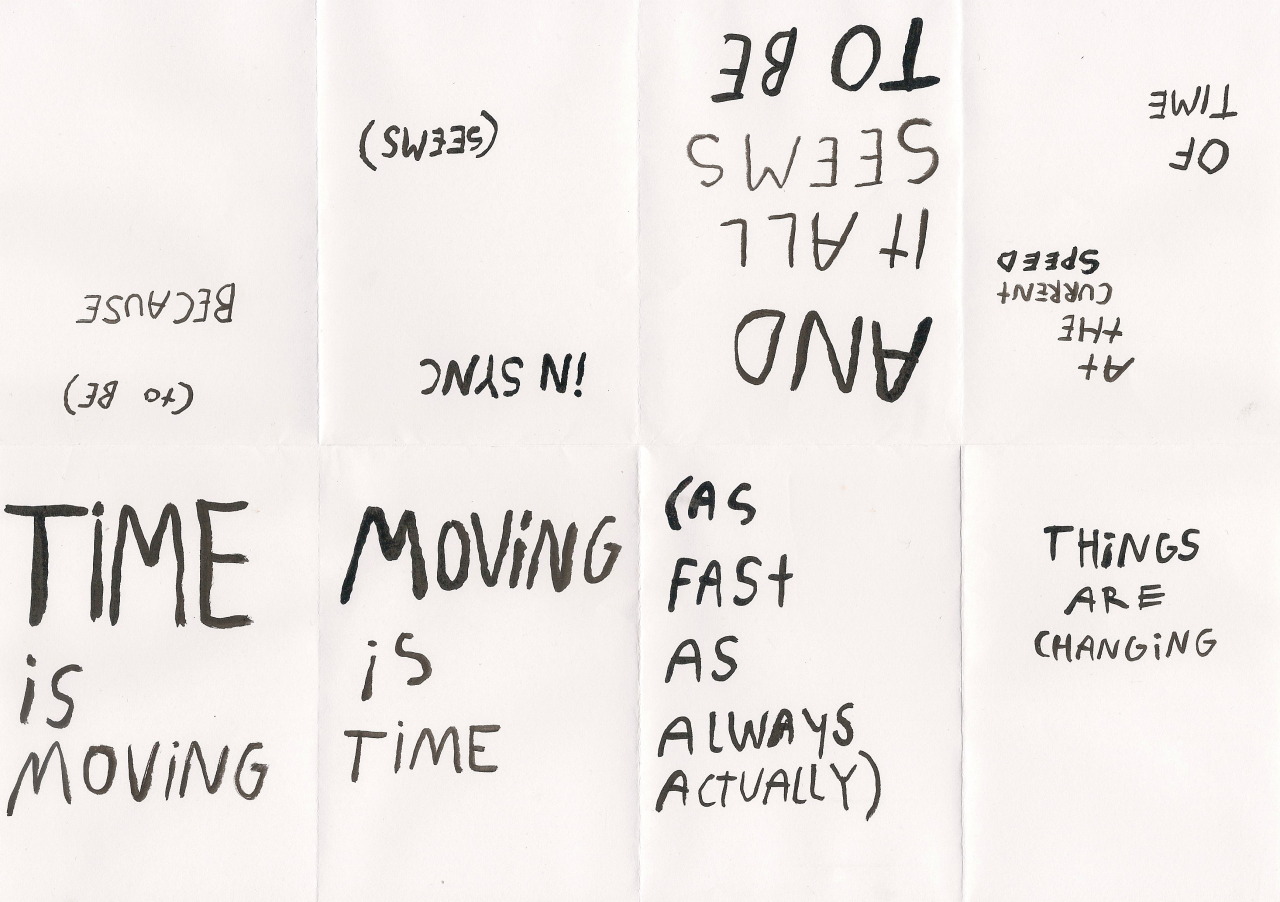 TIME
IS
MOVING
MOVING
IS
TIME
(AS
FAST
AS
ALWAYS
ACTUALLY)
THINGS
ARE
CHANGING
AT
THE
CURRENT
SPEED
OF
TIME
AND
IT ALL
SEEMS
TO BE
IN SYNC
(SEEMS)
(TO BE)
BECAUSE